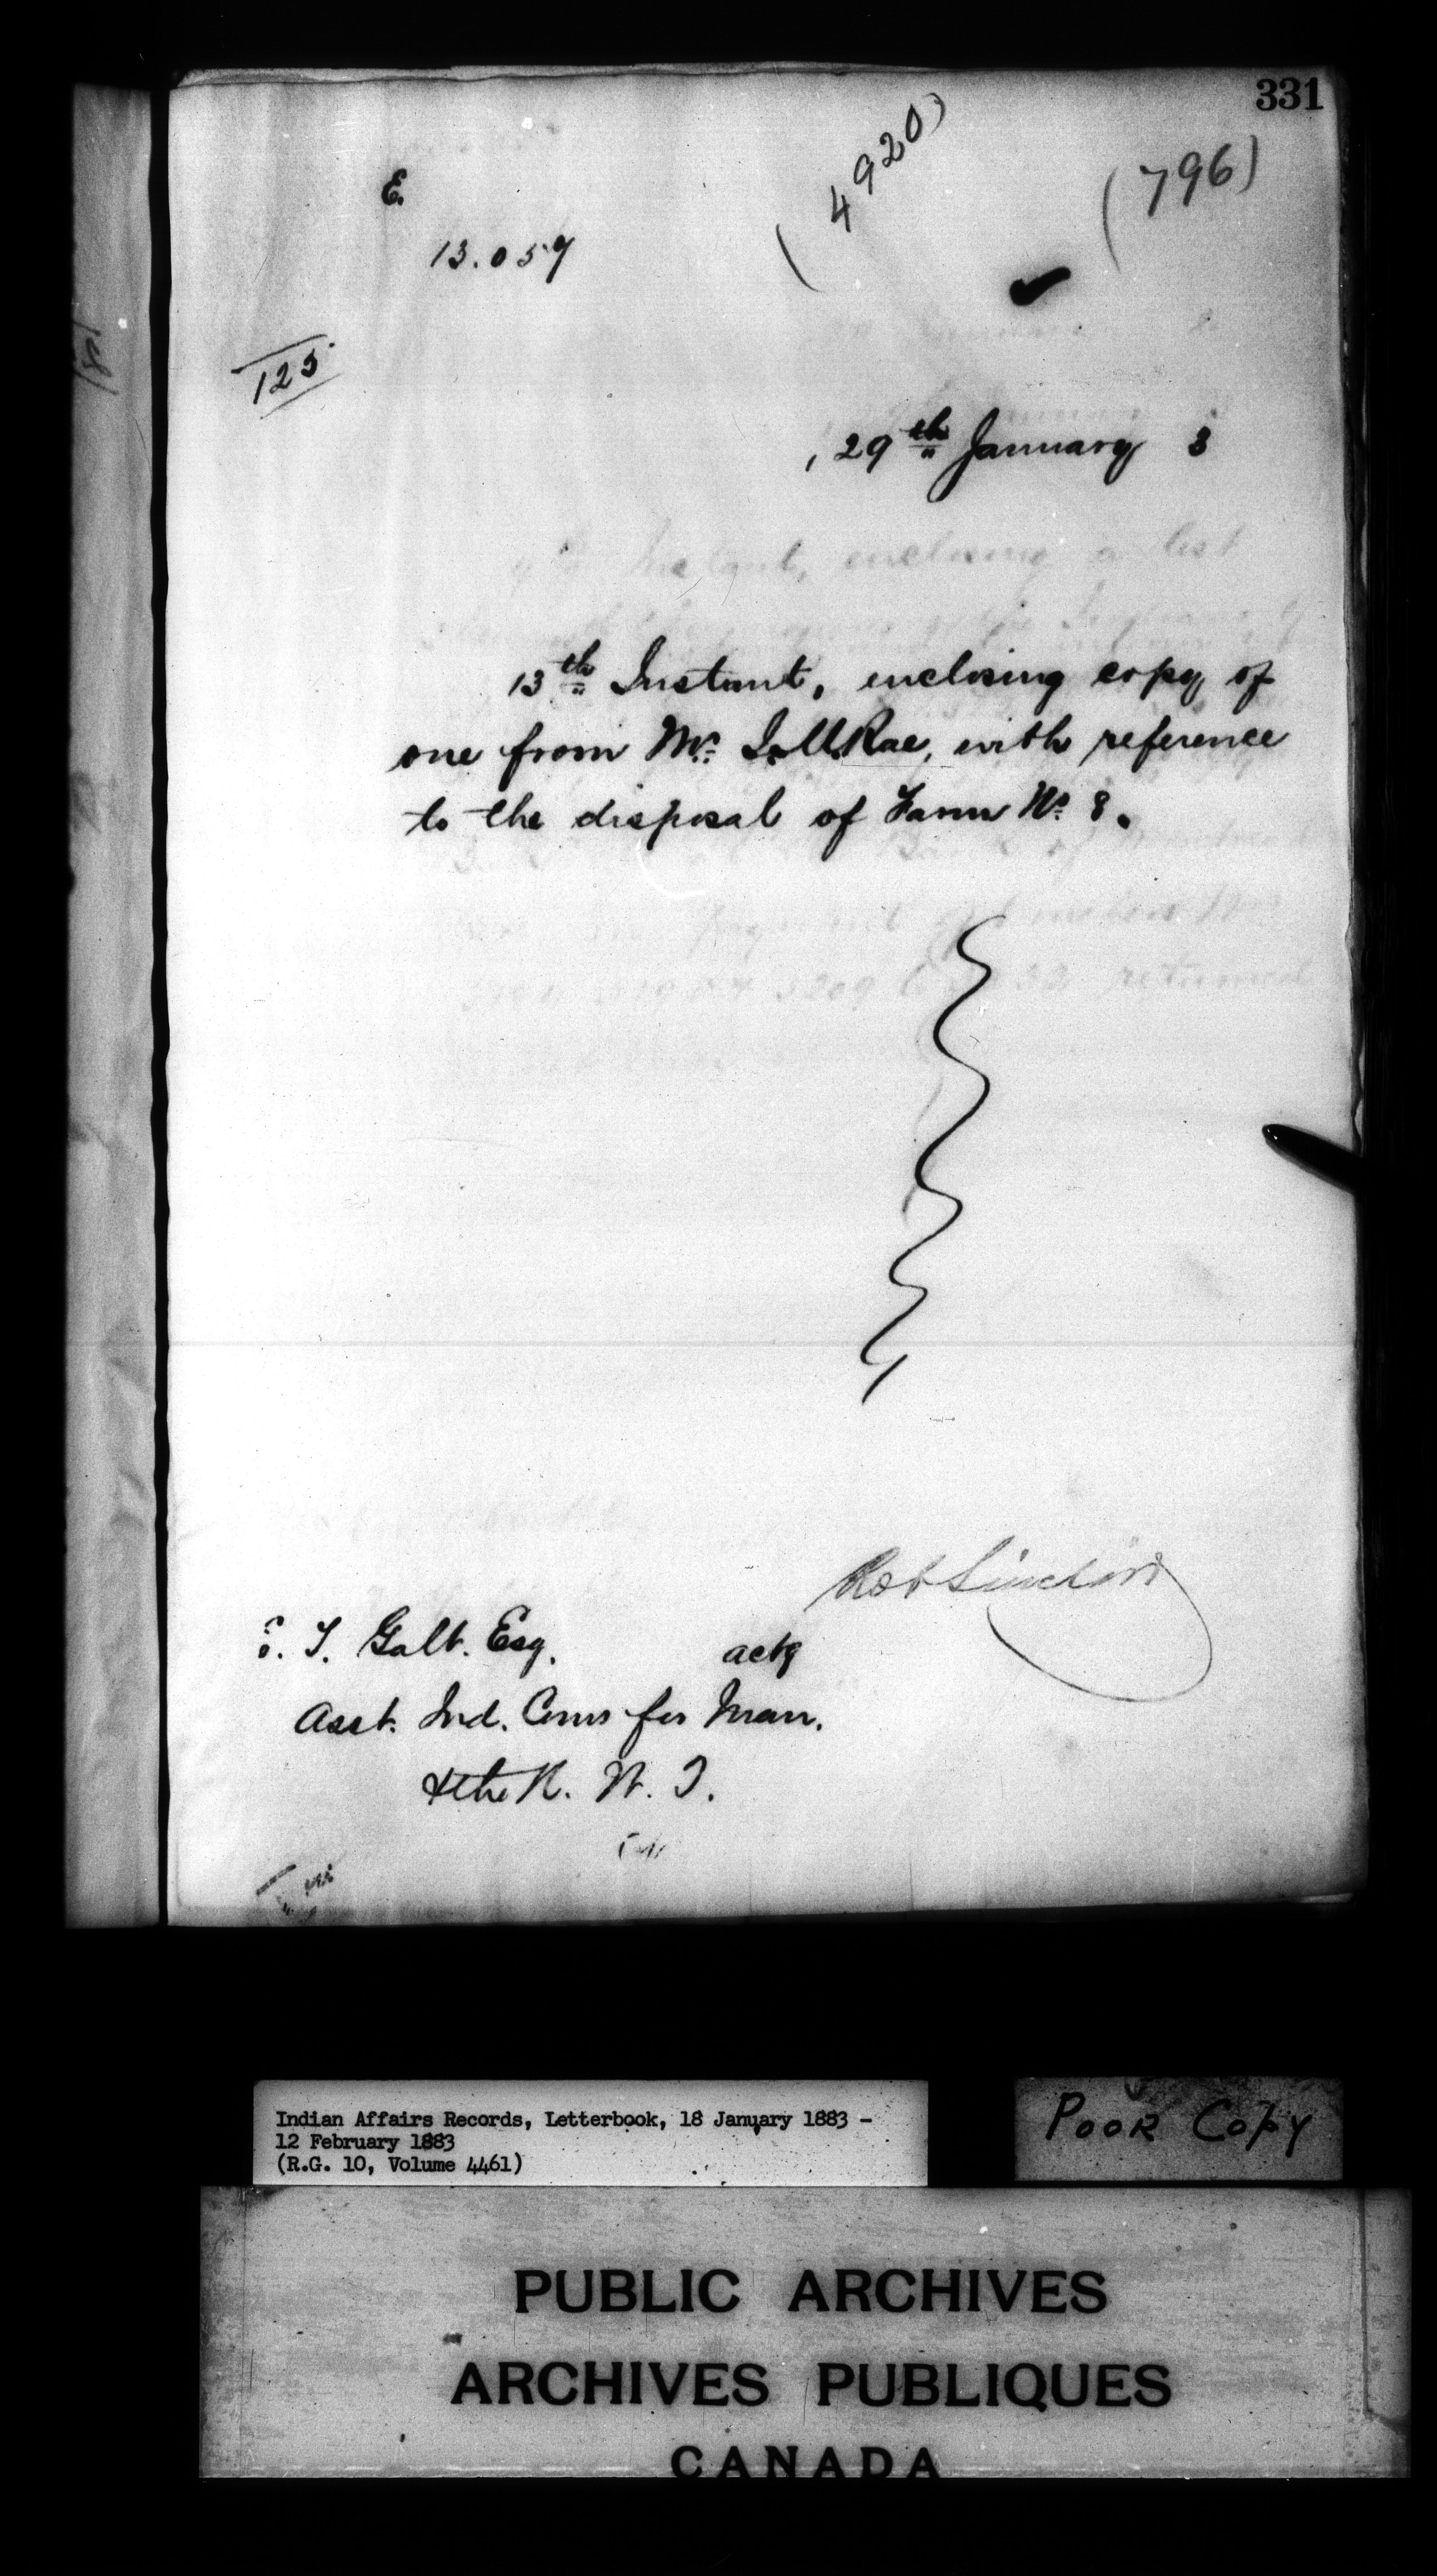 331
(4920)
(796)
E.
13.057
125
, 29th January 3
13th Instant, enclosing copy of
one from Mr. J. M. Rae, with reference
to the disposal of Farm No. 8.
Robt Sinclair
E. T. Galt. Esq. actg
Asst. Ind. Coms for Man.
& the N. W. T.
Indian Affairs Records, Letterbook, 18 January 1883 -
12 February 1883
(R.G. 10, Volume 4461)
POOR COPY
PUBLIC ARCHIVES
ARCHIVES PUBLIQUES
CANADA